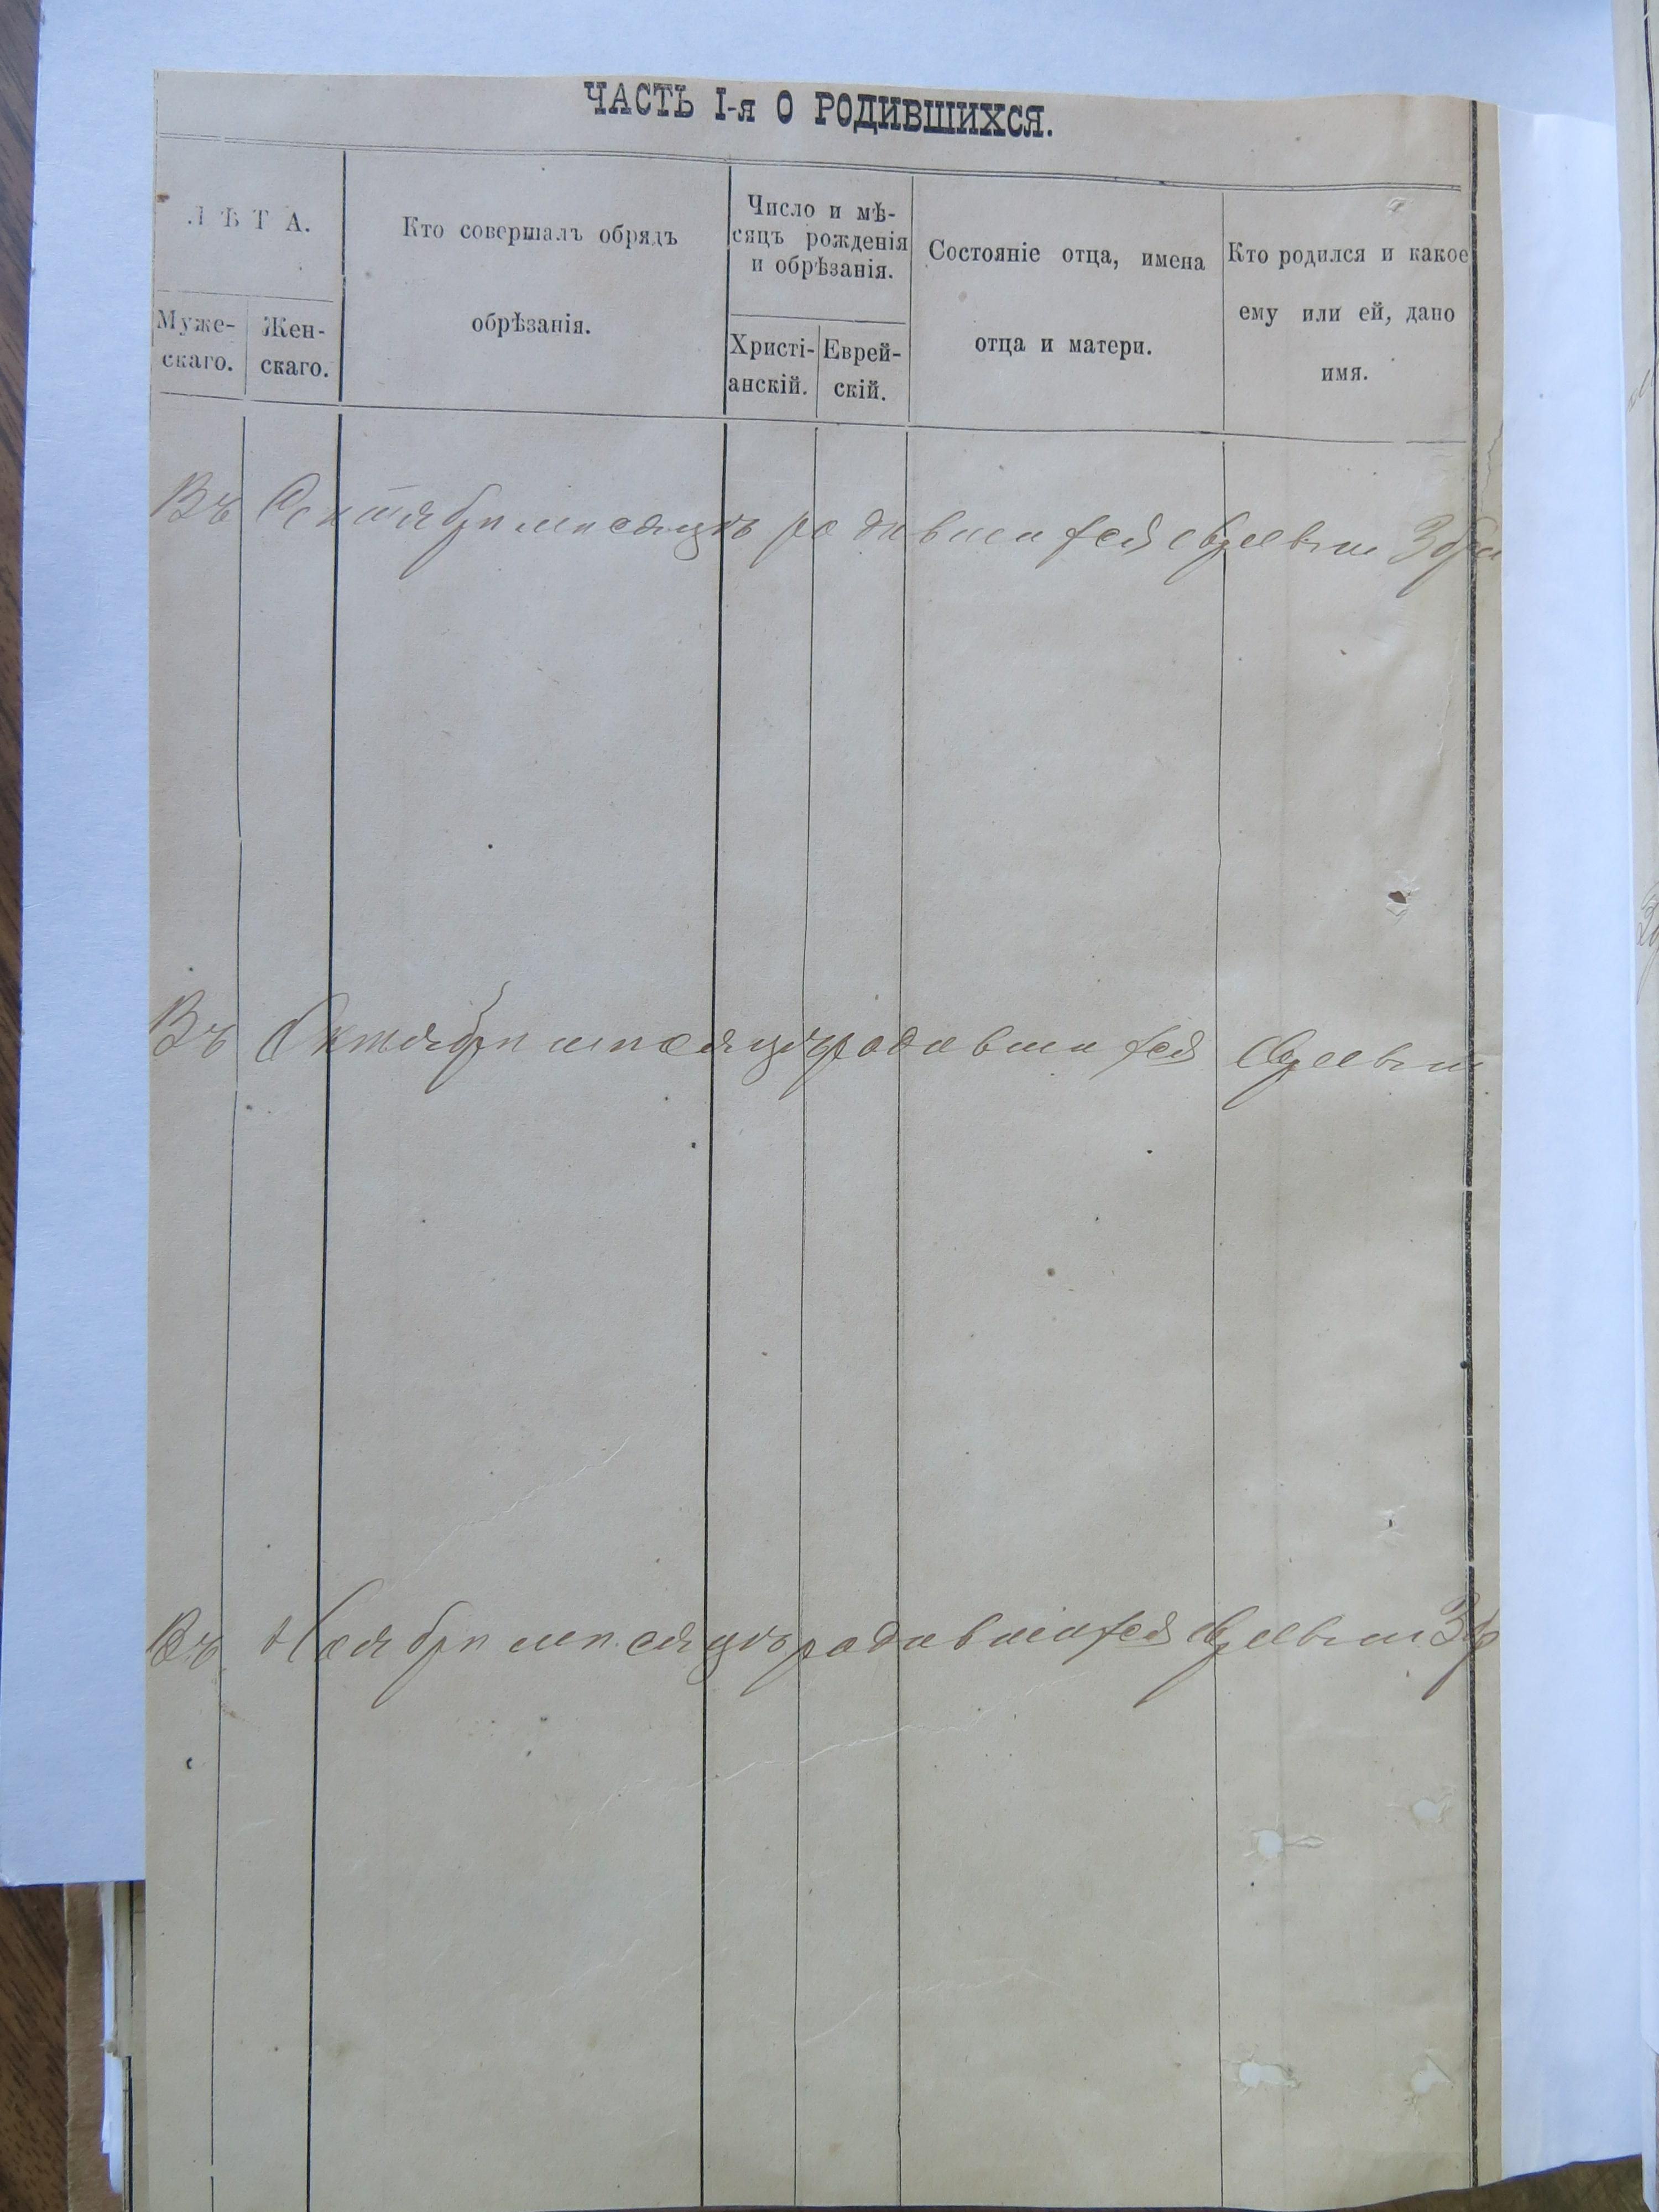 ЧАСТЬ I-я О РОДИВШИХСЯ.
ЛѢТА.
Муже-
скаго.
Жен-
скаго.
Кто совершалъ обрядъ
обрѣзанія.
Число и мѣ-
сяцъ рожденія
и обрѣзанія.
Христі-
анскій.
Еврей-
скій.
Состояніе отца, имена
отца и матери.
Кто родился и какое
ему или ей, дано
имя.
Въ Сентябрѣ мѣсяцѣ родившихся
Въ Октябрѣ мѣсяцѣ родившихся
Въ Ноябрѣ мѣсяцѣ родившихся